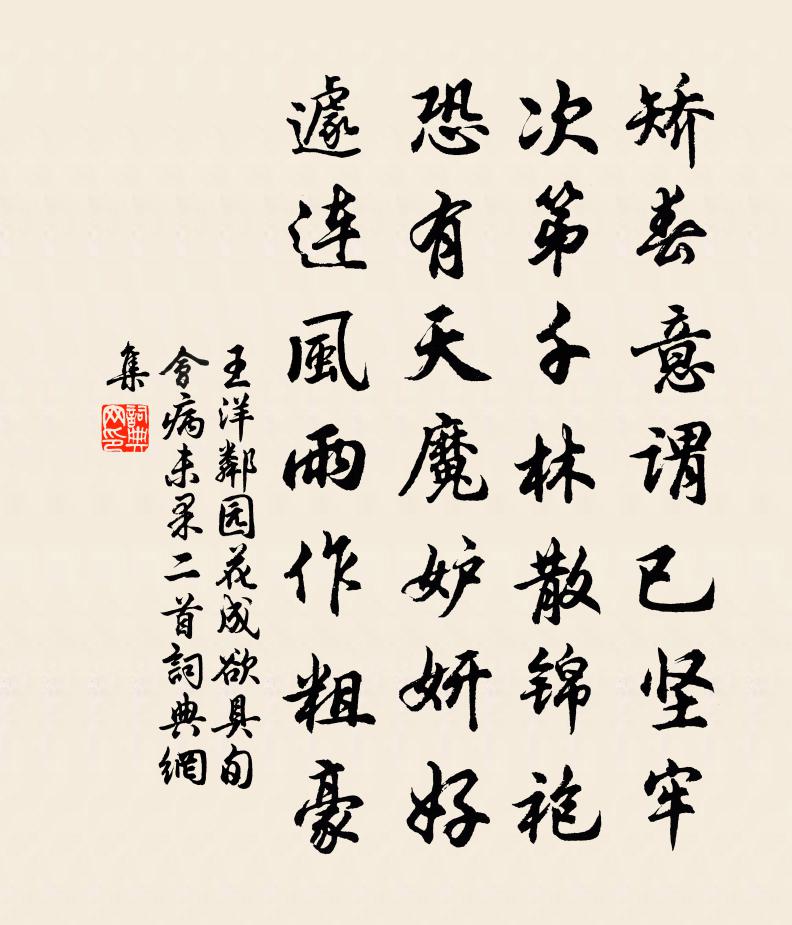 矫春意谓已坚牢
次第千林散锦袍
恐有天魔妒妍好
遽连風雨作粗豪
王洋鄰园花成欲具旬
會病未果二首詞典網
集
詞典
网印